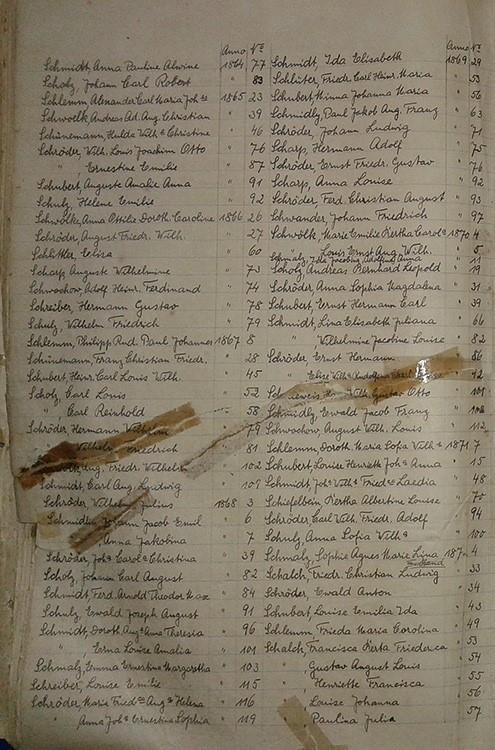 Anno No
Schmidt, Anna Pauline Alwine 1864 77
Scholz, Johann Carl Robert " 83
Schlemm Alexander Carl Maria Joh 1865 23
Schwolk Andreas Ad. Aug. Christian " 39
Schünemann, Hulda Wilh. Christine " 46
Schröder, Wilh. Louis Joachim Otto " 76
" Ernestine Emilie " 87
Schubert, Auguste Amalie Anna " 91
Schulz, Helene Emilie " 92
Schwolke, Anna Ottilie Doroth. Caroline 1866 26
Schröder, August Friedr. Wilh. " 27
Schlittler, Elisa " 60
Scharp, Auguste Wilhelmine " 73
Schwochow, Adolf Heinr. Ferdinand " 74
Schreiber Hermann Gustav " 78
Schulz, Wilhelm Friedrich " 79
Schlemm, Philipp Rud. Paul Johannes 1867 8
Schünemann, Franz Christian Friedr. " 28
Schubert, Heinr. Carl Louis Wilh. " 45
Scholz, Carl Louis " 52
" Carl Reinhold " 58
Schröder Hermann Wilhelm " 79
Wilhelm Friedrich " 81
Aug. Friedr. Wilhelm " 102
Schmidt, Carl Aug. Ludwig " 107
Schröder, Wilhelm Julius 1868 3
Schmidly Johann Jacob Emil " 6
" Anna Jakobina " 7
Schröder, Joh. Carol. Christina " 39
Scholz, Johann Carl August " 82
Schmidt, Ferd. Arnold Theodor Max " 84
Schulz, Ewald Joseph August " 91
Schmidt, Doroth. Aug. Anna Theresia " 96
" Erna Louise Amalia " 101
Schmalz, Emma Ernestine Margaretha " 103
Schreiber, Louise Emilie " 115
Schröder, Maria Fried. Aug. Helena " 116
" Anna Joh. Ernestina Sophia " 119
Anno No
Schmidt, Ida Elisabeth 1869 29
Schlüter, Friedr. Carl Heinr. Maria " 53
Schubert, Minna Johanna Maria " 56
Schmidly, Paul Jakob Aug. Franz " 63
Schröder, Johann Ludwig " 71
Scharp, Hermann Adolf " 75
Schröder, Ernst Friedr. Gustav " 76
Scharp, Anna Louise " 92
Schröder, Ferd. Christian August " 93
Schwander, Johann Friedrich " 97
Schwölk, Marie Emilie Bertha Carol. 1870 4
" Louis Ernst Aug. Wilh. " 5
Schmalz, Anna " 11
Scholz, Andreas Bernhard Leopold " 19
Schröder Anna Sophia Magdalena " 31
Schubert, Ernst Hermann Carl " 39
Schmidt, Lina Elisabeth Juliana " 66
" Wilhelmine Jacobine Louise " 82
Schröder Ernst Hermann " 86
Elise Wilh. " 42
Otto " 101
Schmidly, Ewald Jacob Franz "
Schwochow, August Wilh. Louis " 112
Schlemm, Doroth. Maria Sofia Wilh. 1871 7
Schubert, Louise Henriett. Joh. Anna " 15
Schmidt, Joh. Wilh. Fried. Laedia " 48
Schiefelbein, Bertha Albertine Louise " 75
Schröder, Carl Wilh. Friedr. Adolf " 94
Schulz, Anna Sofia Wilh. " 100
Schmalz, Sophie Agnes Marie Lina 4
Schalch, Friedr. Christian Ludwig " 33
Schröder, Ewald Anton " 34
Schubert, Louise Emilia Ida " 43
Schlemm Frieda Maria Carolina " 49
Schalch, Francisca Berta Friederica " 53
" Gustav August Louis " 54
" Henriette Francisca " 55
" Louise Johanna " 56
" Paulina Julia " 57